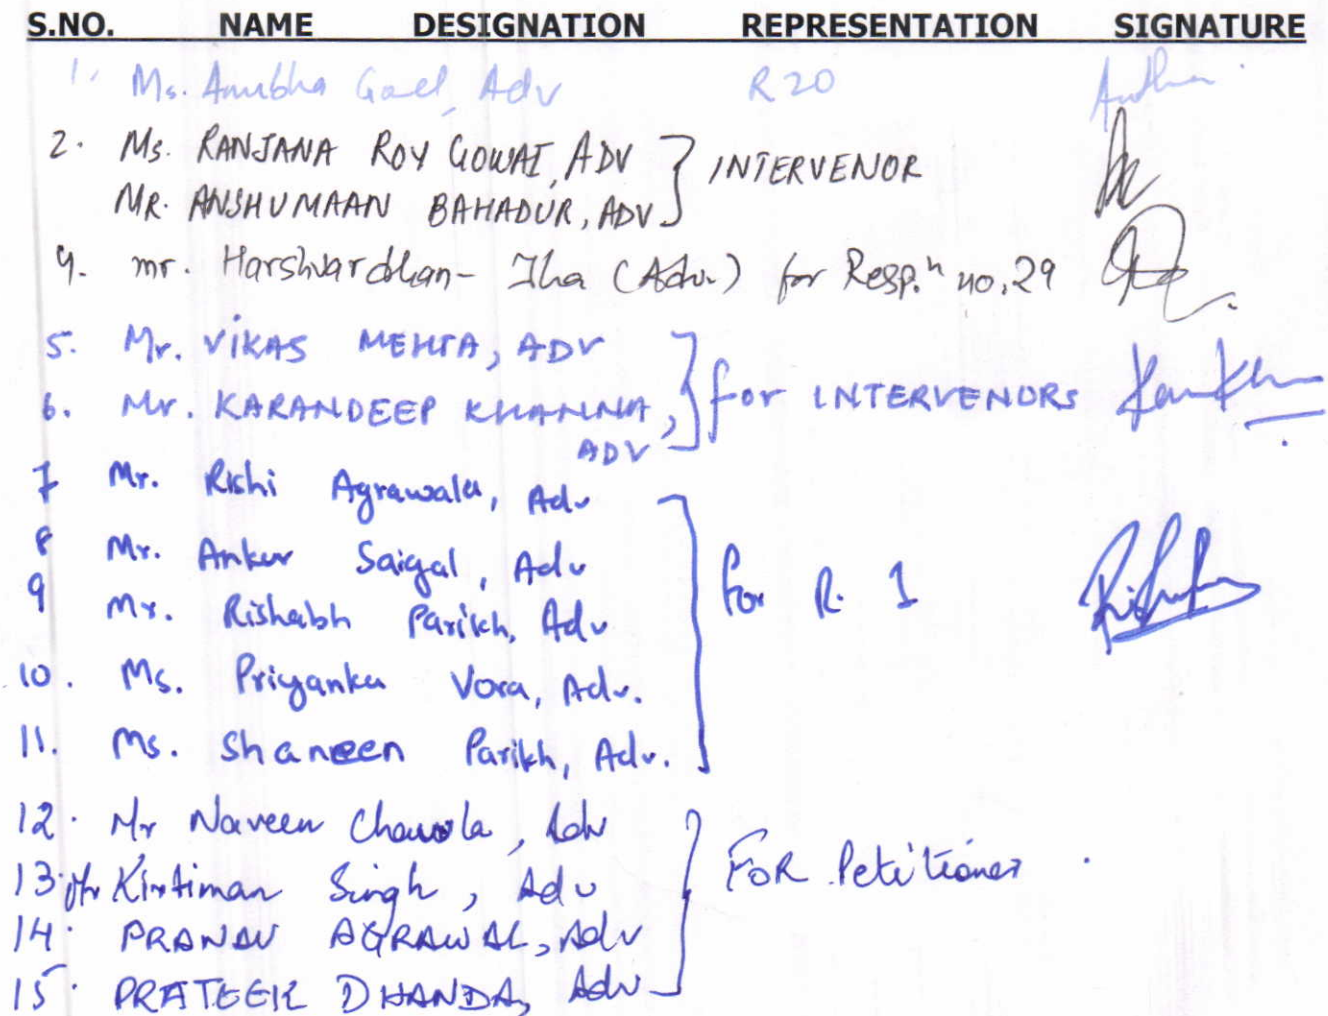 S.NO. NAME DESIGNATION REPRESENTATION SIGNATURE
1. Ms. Anubha Goel, Adv R 20
2. Ms. RANJANA ROY GOWAI, ADV } INTERVENOR
MR. ANSHUMAAN BAHADUR, ADV
4. mr. Harshvardhan Jha (Adv.) for Resp. no. 29
5. Mr. VIKAS MEHTA, ADV
6. Mr. KARANDEEP KHANNA, } for INTERVENORS
ADV
7 Mr. Rishi Agrawala, Adv
8 Mr. Ankur Saigal, Adv
9 Mr. Rishabh Parikh, Adv } for R. 1
10. Ms. Priyanka Vora, Adv.
11. Ms. Shaneen Parikh, Adv.
12. Mr Naveen Chawla, Adv
13. Mr Kirtiman Singh, Adv } FOR Petitioner
14. PRANAV AGRAWAL, Adv
15. PRATEEK DHANDA, Adv